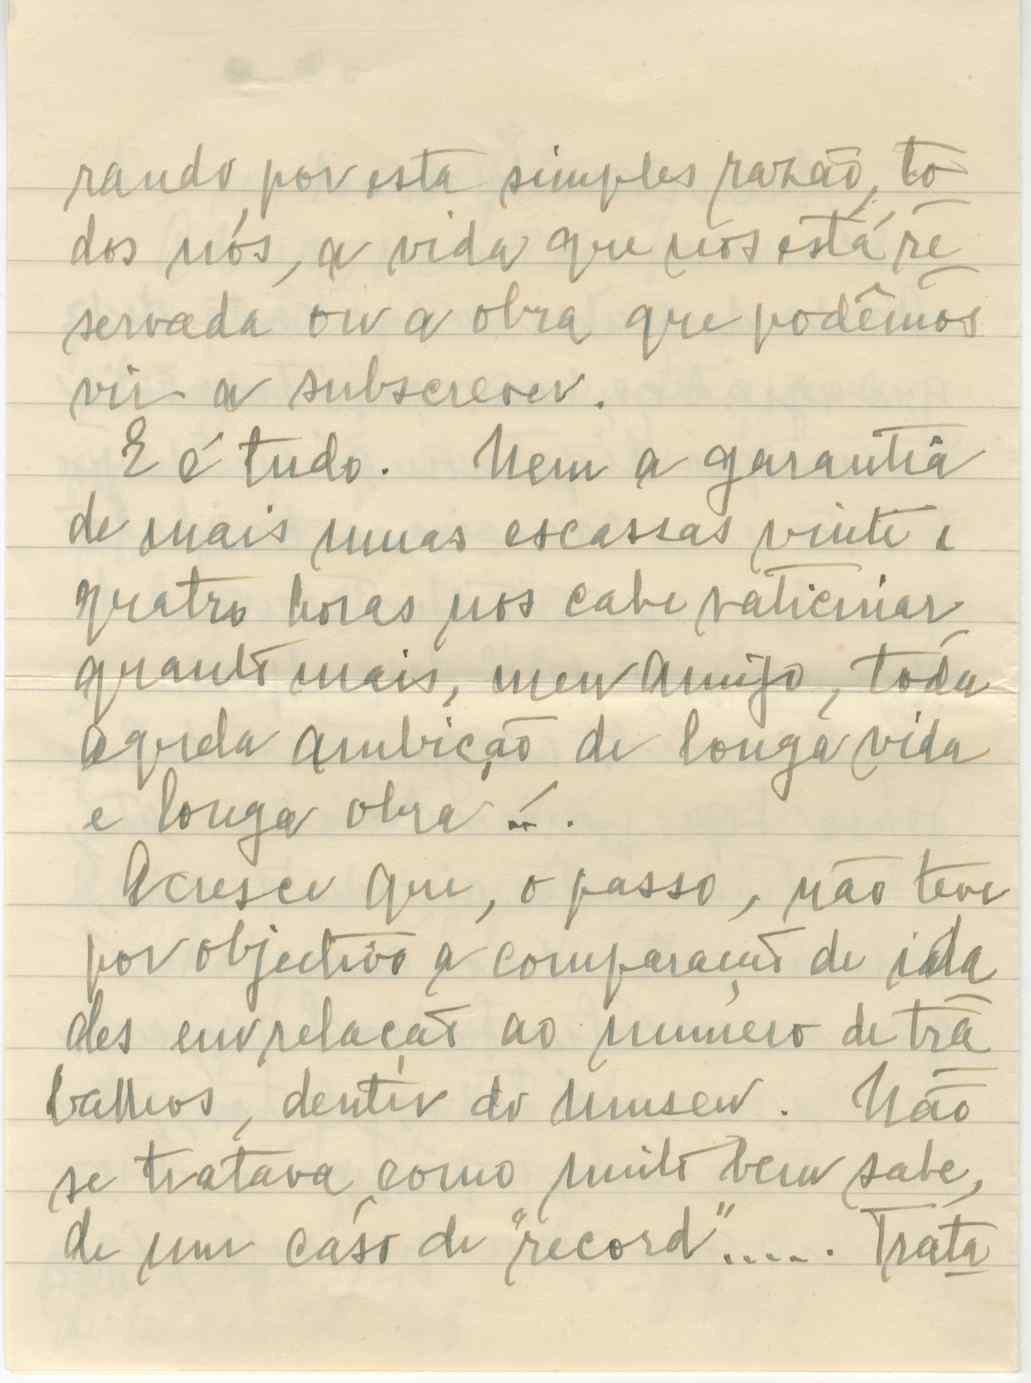 rando por esta simples razão, to
dos nós, a vida que nos está re
servada ou a obra que podêmos
vir a subscrever.
E é tudo. Nem a garantia
de mais umas escassas vinte e
quatro horas nos cabe vaticinar
quanto mais, meu Amigo, toda
aquela ambição de longa vida
e longa obra!..
Acresce que, o passo, não teve
por objectivo a comparação de ida
des em relação ao número de tra
balhos, dentro do Museu. Não
se tratava como muito bem sabe,
de um cáso de "record"..... Trata